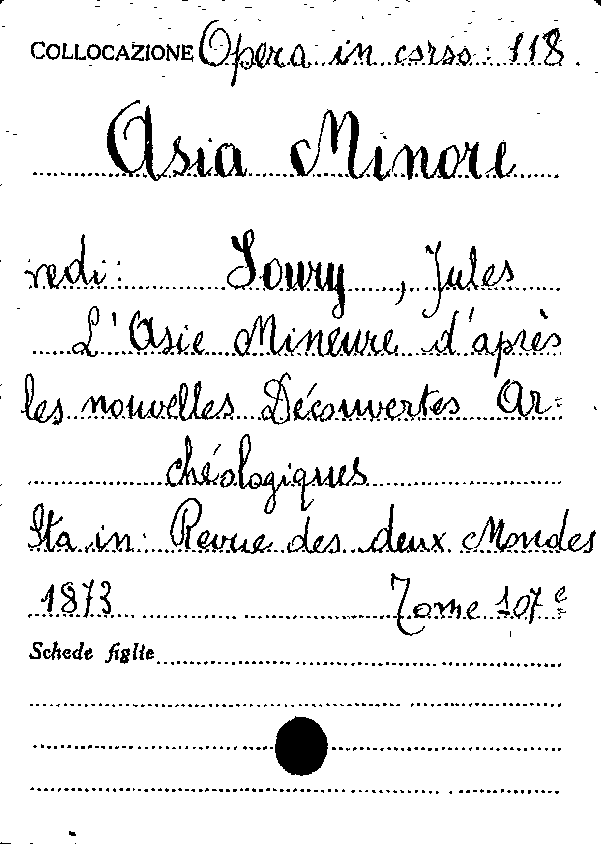 COLLOCAZIONE Opera in corso: 118.
Asia Minore
vedi: Soury, Jules
L'Asie Mineure d'après
les nouvelles Découvertes Ar=
chéologiques
Sta in: Revue des deux Mondes
1873 Tome 107e
Schede figlie